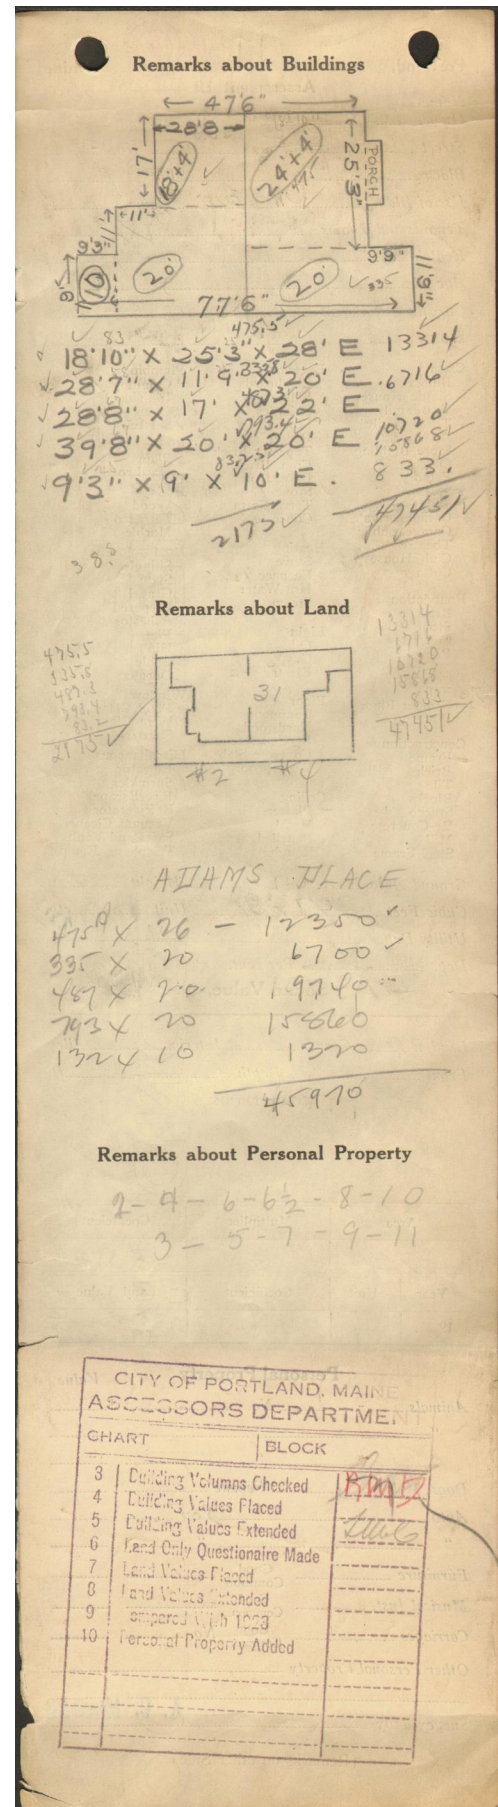 Remarks about Buildings
47'6"
28'8
17'
18'+4'
24'+4'
475
25'3"
PORCH
11'
11'
9'3"
9'
10
20'
20'
335
9'9"
11'9"
77'6"
83
475.5
18'10" X 25'3" X 28' E 13314
28'7" X 11'9" X 20' E. 6716
28'8" X 17' X 22' E 10720
39'8" X 20' X 20' E 15868
9'3" X 9' X 10' E. 833.
2175 47451
38.5
Remarks about Land
475.5
335.8
487.3
793.4
83.2
2175
13314
6716
10720
15868
833
47451
31
#2 #4
ADAMS PLACE
475 X 26 - 12350
335 X 20 6700
487 X 20 9740
793 X 20 15860
132 X 10 1320
45970
Remarks about Personal Property
2 - 4 - 6 - 6½ - 8 - 10
3 - 5 - 7 - 9 - 11
CITY OF PORTLAND, MAINE
ASSESSORS DEPARTMENT
CHART BLOCK
3 Building Volumns Checked
4 Building Values Placed
5 Building Values Extended
6 Land Only Questionaire Made
7 Land Values Placed
8 Land Values Extended
9 ompared With 1923
10 Personal Property Added